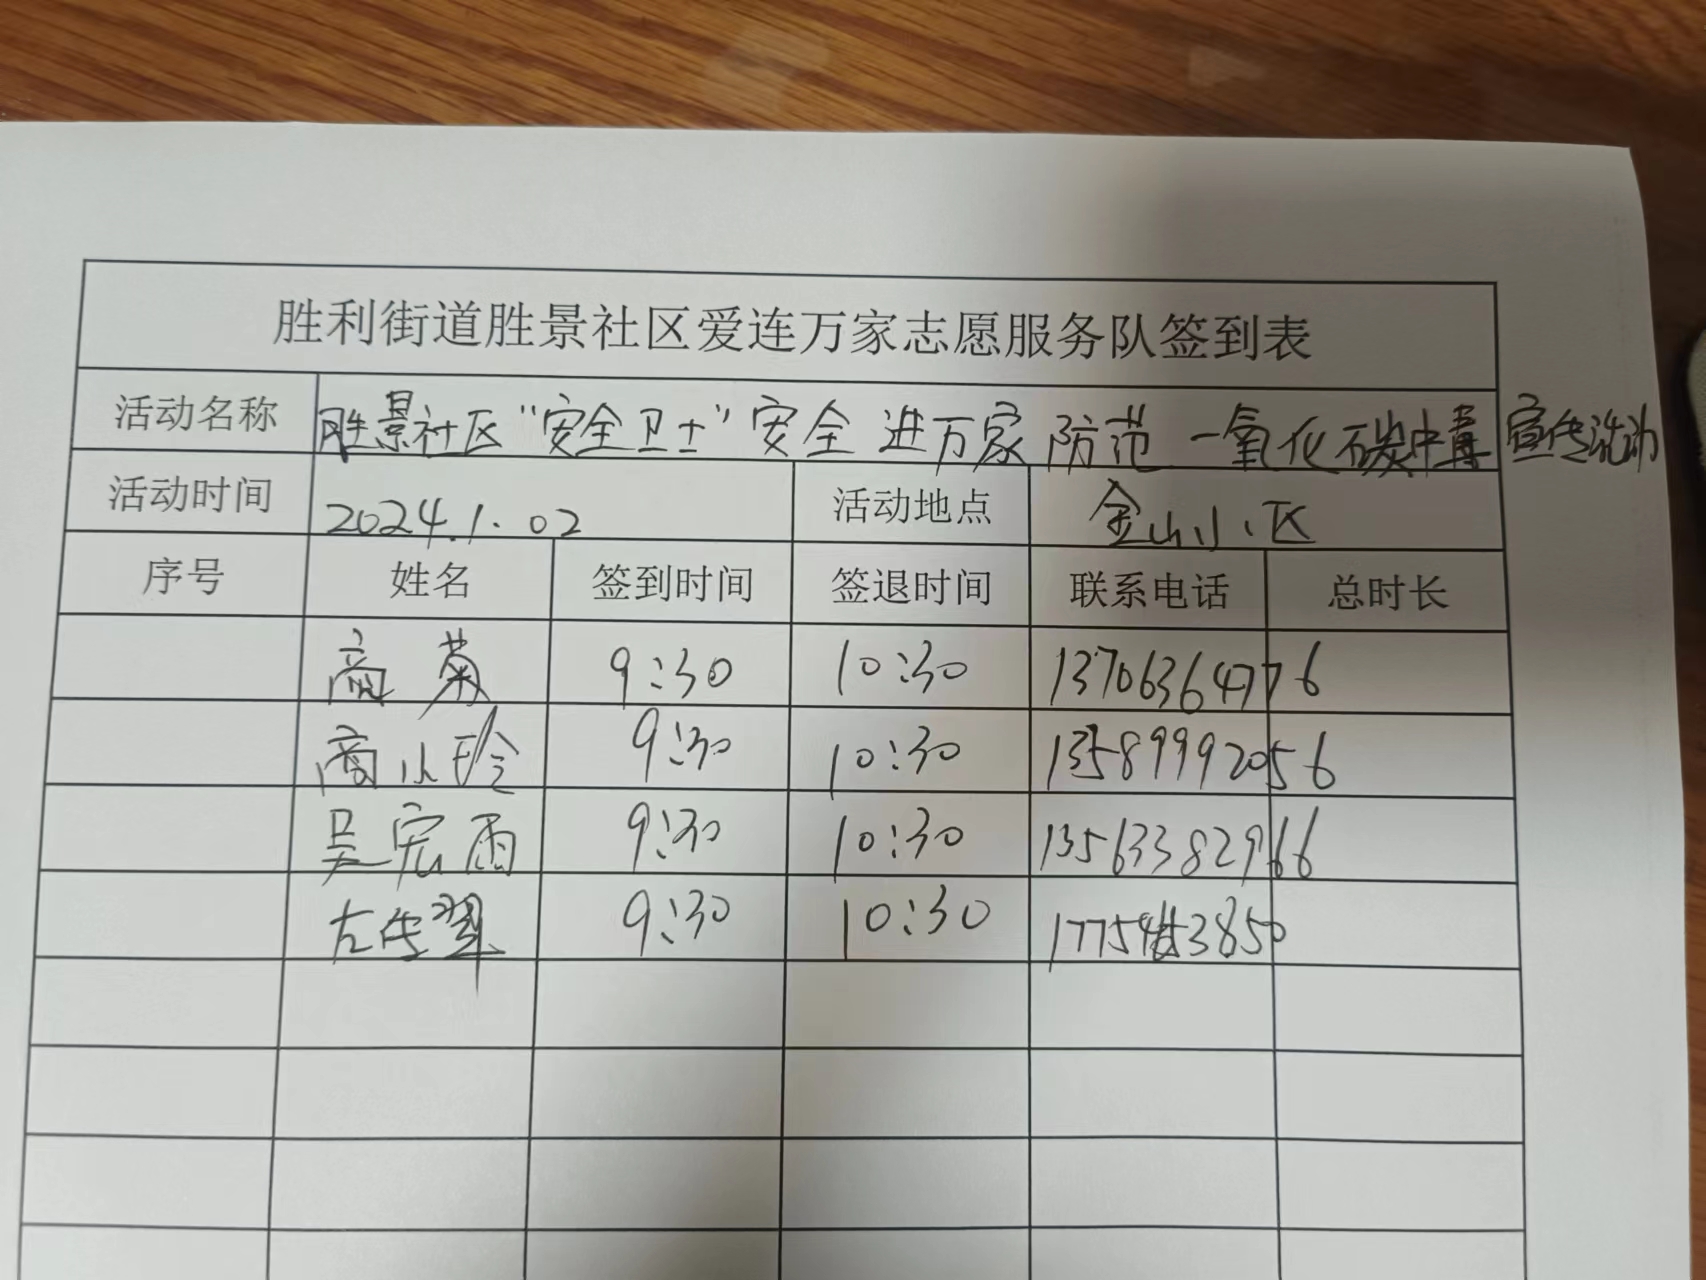 胜利街道胜景社区爱连万家志愿服务队签到表
活动名称 胜景社区“安全卫士”安全进万家防范一氧化碳中毒宣传活动
活动时间 2024.1.02 活动地点 金山小区
序号 姓名 签到时间 签退时间 联系电话 总时长
商菊 9:30 10:30 13706364776
商小玲 9:30 10:30 13589992056
吴宏雨 9:30 10:30 13563382966
左传翠 9:30 10:30